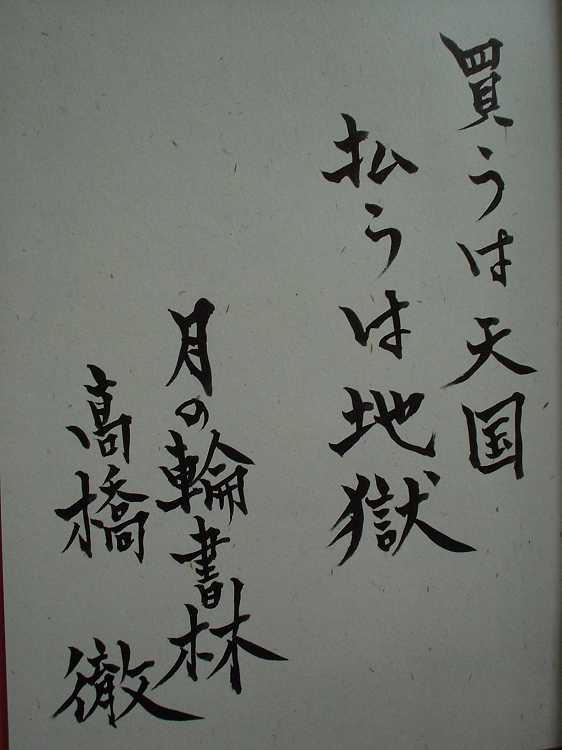 買うは天国
払うは地獄
月の輪書林
髙橋 徹